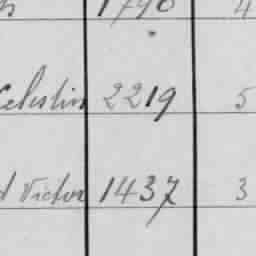 1790 4
Celestin 2219 5
d Victor 1437 3